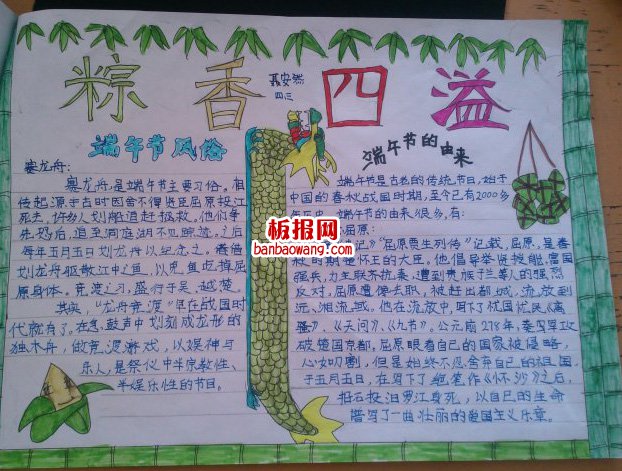 粽香四溢
聂安然
四、三
端午节风俗
赛龙舟:
赛龙舟,是端午节主要习俗。相
传起源于古时因舍不得贤臣屈原投江
死去,许多人划船追赶拯救。他们争
先恐后,追至洞庭湖不见踪迹,之后
每年五月五日划龙舟以纪念之。借
划龙舟驱散江中之鱼,以免鱼吃掉屈
原身体。竞渡之习,盛行于吴、越、楚。
其实,"龙舟竞渡"早在战国时
代就有了。在急鼓声中划刻成龙形的
独木舟,做竞渡游戏,以娱神与
乐人,是祭仪中半宗教性、
半娱乐性的节目。
端午节的由来
端午节是古老的传统节日,始于
中国的春秋战国时期,至今已有2000多
年历史。端午节的由来很多,有:
屈原:
记》"屈原贾生列传"记载,屈原,是春
秋时期楚怀王的大臣。他倡导举贤授能,富国
强兵,力主联齐抗秦,遭到贵族子兰等人的强烈
反对,屈原遭馋去职,被赶出都城,流放到
沅、湘流域。他在流放中,写下了忧国忧民《离
骚》、《天问》、《九节》。公元前278年,秦国军攻
破楚国京都,屈原眼看自己的国家被侵略,
心如刀割,但是始终不忍舍弃自己的祖国,
于五月五日,在写下了绝笔作《怀沙》之后,
抱石投汨罗江身死,以自己的生命
谱写了一曲壮丽的爱国主义乐章。
板报网
banbaowang.com